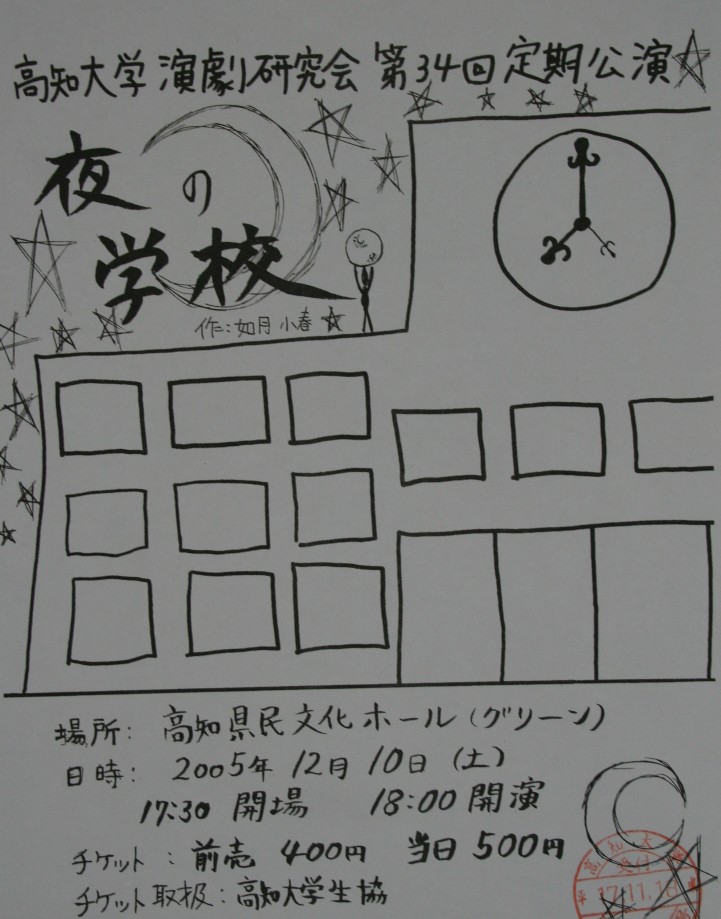 高知大学 演劇研究会 第34回定期公演
夜の
学校
作:如月小春
場所: 高知県民文化ホール(グリーン)
日時: 2005年 12月 10日 (土)
17:30 開場 18:00 開演
チケット: 前売 400円 当日 500円
チケット取扱:高知大学生協